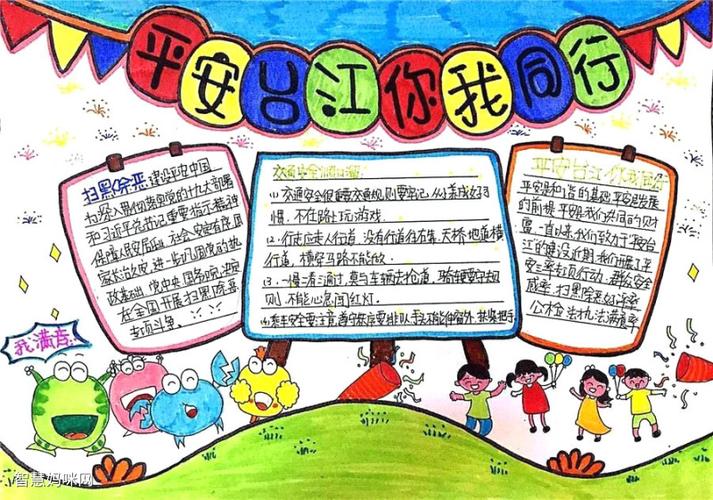 平安台江你我同行
扫黑除恶建设平安中国
为深入贯彻落实党的十九大部署
和习近平总书记重要指示精神
保障人民安居乐业、社会安定有序国
家长治久安、进一步巩固党的执
政基础、党中央、国务院决定
在全国开展扫黑除恶
专项斗争
交通安全
(1)交通安全很重要交通规则要牢记从小养成好习
惯,不在路上玩游戏
(2.行走应走人行道,没有行道往右靠,天桥地道横
行道,横穿马路不能做
(3.一慢二看三通过,莫与车辆去抢道,骑车要守规
则,不能心急闯红灯。
平安台江你我同行
平安是和谐的基础平安是发展
的前提,平安是我们共同的财
富,一直以来我们致力于平安台
江的建设近期我们开展了平
安三率专项行动,群众安全
感率,扫黑除恶好评率
公检法执法满意率
我满意!
智慧妈咪网